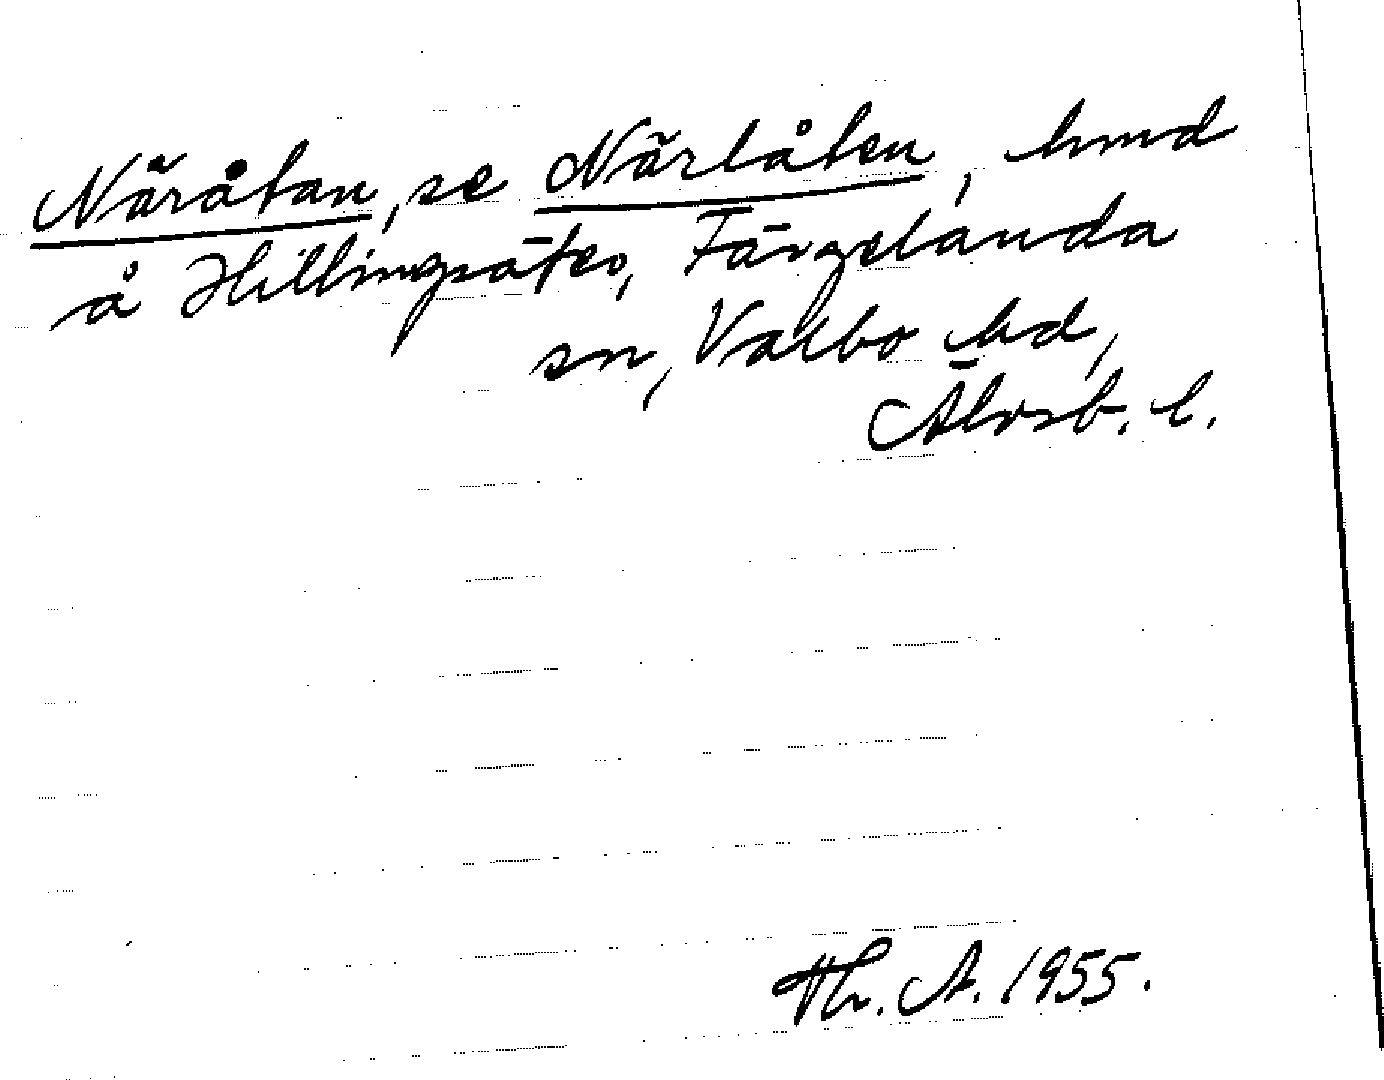 Näråtan, se Närlåten, hmd
å Hillingsäter, Färgelanda
sn, Valbo hd,
Älvsb. l.
Th. A. 1955.